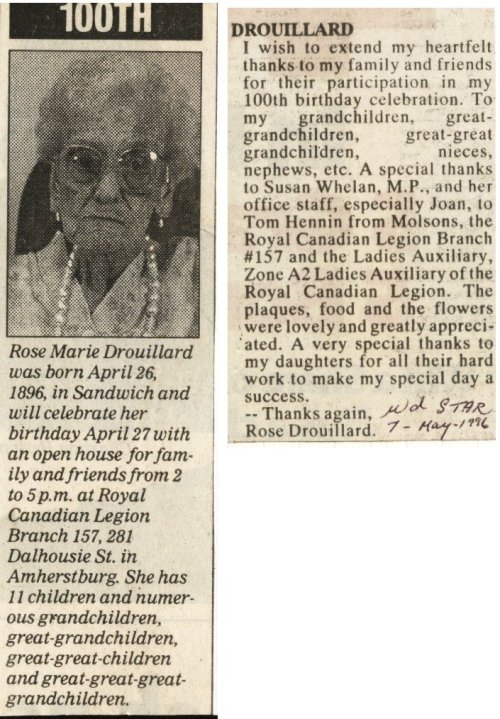 100TH
Rose Marie Drouillard
was born April 26,
1896, in Sandwich and
will celebrate her
birthday April 27 with
an open house for fam-
ily and friends from 2
to 5 p.m. at Royal
Canadian Legion
Branch 157, 281
Dalhousie St. in
Amherstburg. She has
11 children and numer-
ous grandchildren,
great-grandchildren,
great-great-children
and great-great-great-
grandchildren.
DROUILLARD
I wish to extend my heartfelt
thanks to my family and friends
for their participation in my
100th birthday celebration. To
my grandchildren, great-
grandchildren, great-great
grandchildren, nieces,
nephews, etc. A special thanks
to Susan Whelan, M.P., and her
office staff, especially Joan, to
Tom Hennin from Molsons, the
Royal Canadian Legion Branch
#157 and the Ladies Auxiliary,
Zone A2 Ladies Auxiliary of the
Royal Canadian Legion. The
plaques, food and the flowers
were lovely and greatly appreci-
ated. A very special thanks to
my daughters for all their hard
work to make my special day a
success.
-- Thanks again,
Rose Drouillard.
Wd STAR
7 - May - 1996